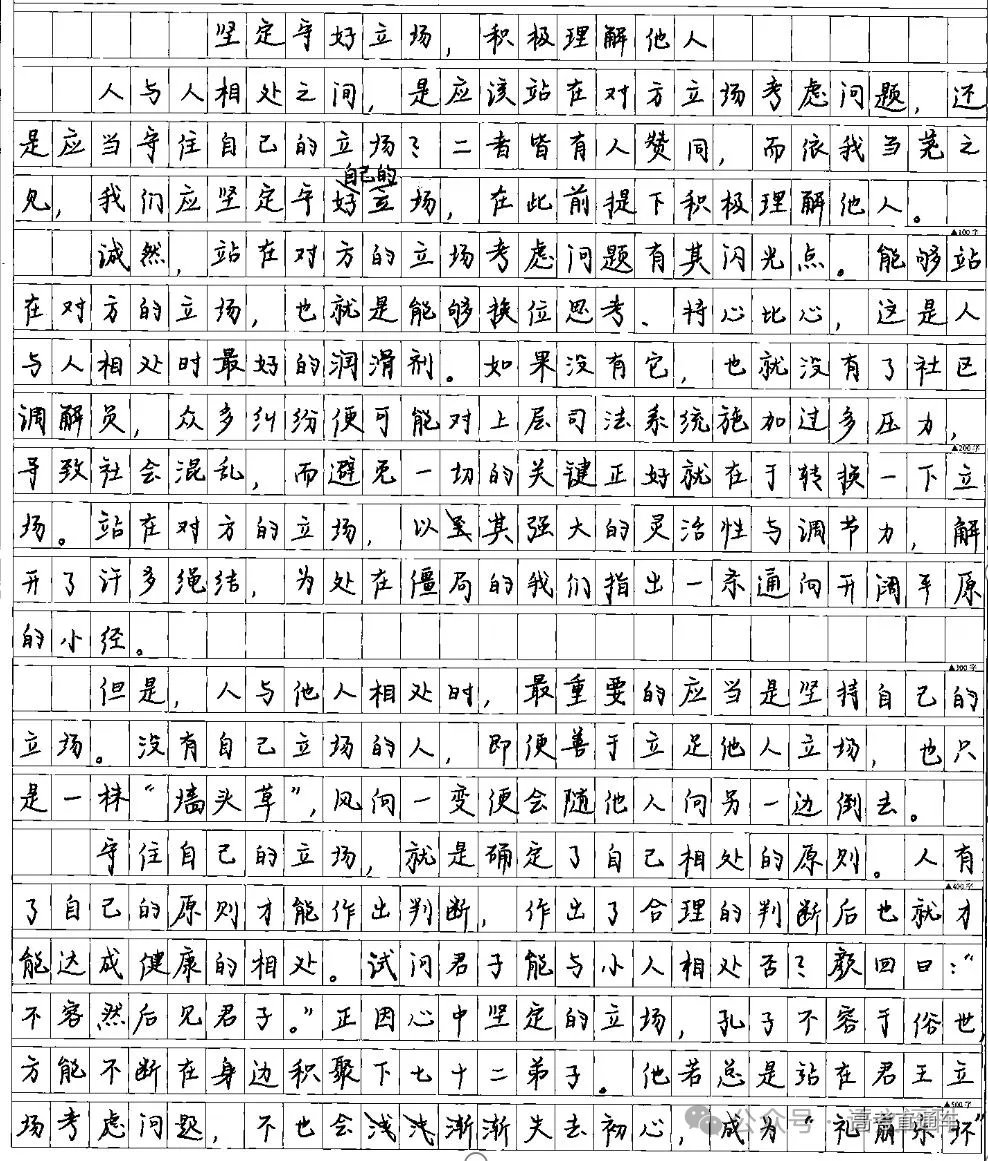 坚定守好立场，积极理解他人
人与人相处之间，是应该站在对方立场考虑问题，还
是应当守住自己的立场？二者皆有人赞同，而依我当荛之
自己的
见，我们应坚定守好立场，在此前提下积极理解他人。
▲100字
诚然，站在对方的立场考虑问题有其闪光点。能够站
在对方的立场，也就是能够换位思考、将心比心，这是人
与人相处时最好的润滑剂。如果没有它，也就没有了社区
调解员，众多纠纷便可能对上层司法系统施加过多压力，
▲200字
导致社会混乱，而避免一切的关键正好就在于转换一下立
场。站在对方的立场，以其强大的灵活性与调节力，解
开了许多绳结，为处在僵局的我们指出一条通向开阔平原
的小径。
▲300字
但是，人与他人相处时，最重要的应当是坚持自己的
立场。没有自己立场的人，即便善于立足他人立场，也只
是一株“墙头草”，风向一变便会随他人向另一边倒去。
守住自己的立场，就是确定了自己相处的原则。人有
▲400字
了自己的原则才能作出判断，作出了合理的判断后也就才
能达成健康的相处。试问君子能与小人相处否？颜回曰：“
不容然后见君子。”正因心中坚定的立场，孔子不容于俗世，
方能不断在身边积聚下七十二弟子。他若总是站在君王立
▲500字
场考虑问题，不也会浅浅渐渐失去初心，成为“礼崩乐坏”
公众号·高考直通车